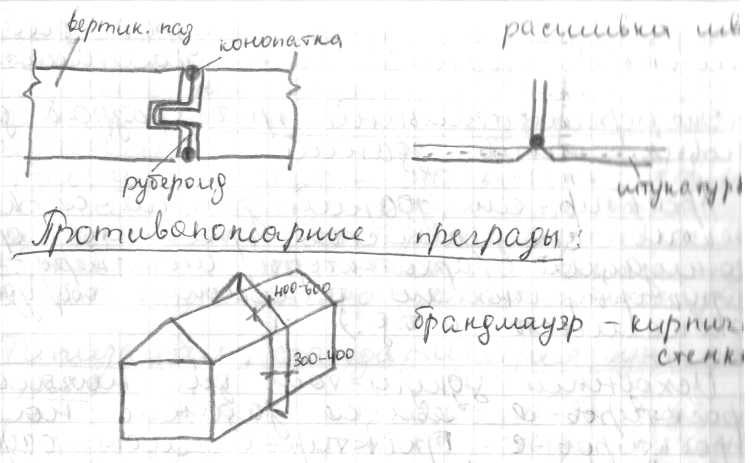 вертик. паз
конопатка
расшивка шв
рубероид
штукатур
Противопожарные преграды:
400-600
300-400
брандмауэр – кирпич
стенк